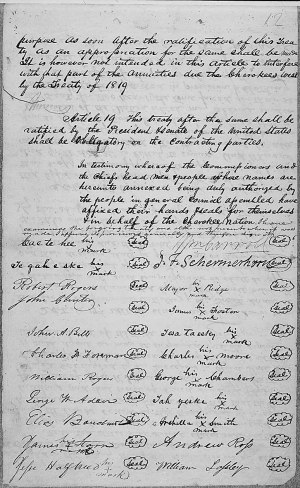 purpose as soon after the ratification of this Trea
ty as an appropriation for the same shall be made
It is however not intended in this article to interfere
with that part of the annuities due the Cherokees west
by the Treaty of 1819
Article 19. This treaty after the same shall be
ratified by the President & Senate of the United States
shall be obligatory on the Contracting parties.
In testimony whereof the Commissioners and
the Chiefs head men & people whose names are
hereunto annexed being duly authorized by
the people in general Council assembled have
affixed their hands & seals for themselves
& in behalf of the Cherokee nation.
Cae te hee his x mark Seal Wm Carroll Seal
Te gah e ske his x mark Seal J. F. Schermerhorn Seal
Robert Rogers Seal Major his x mark Ridge Seal
John Gunter Seal James his x mark Foster Seal
John A. Bell Seal Tesa ta esky his x mark Seal
Charles F Foreman Seal Charles his x mark Moore Seal
William Rogers Seal George his x mark Chambers Seal
George W. Adair Seal Tah yeske his x mark Seal
Elias Boudinot Seal Archilla his x mark Smith Seal
James Starr his x mark Seal Andrew Ross Seal
Jesse Half breed his x mark Seal William Lassley Seal